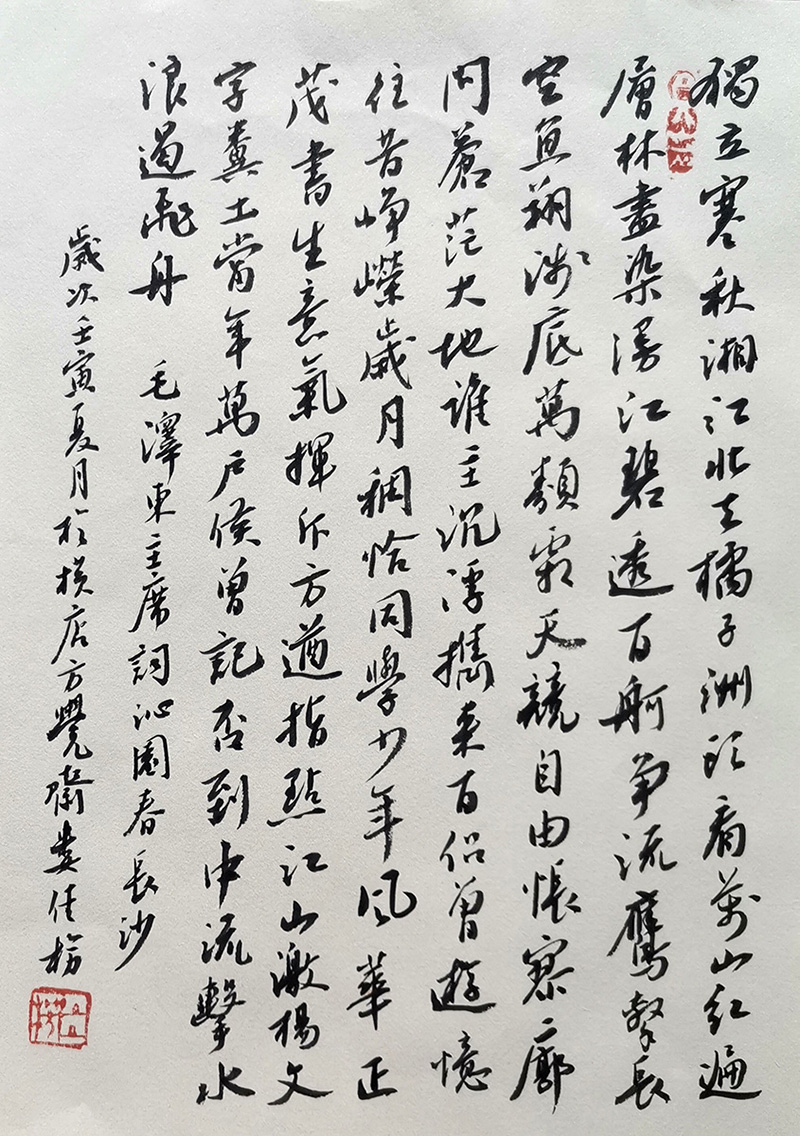 獨立寒秋湘江北去橘子洲頭看萬山紅遍
層林盡染漫江碧透百舸爭流鷹擊長
空魚翔淺底萬類霜天競自由悵寥廓
問蒼茫大地誰主沉浮攜來百侶曾遊憶
往昔崢嶸歲月稠恰同學少年風華正
茂書生意氣揮斥方遒指點江山激楊文
字糞土當年萬戶侯曾記否到中流擊水
浪遏飛舟 毛澤東主席詞沁園春長沙
歲次壬寅夏月於橫店方覺齋婁佳